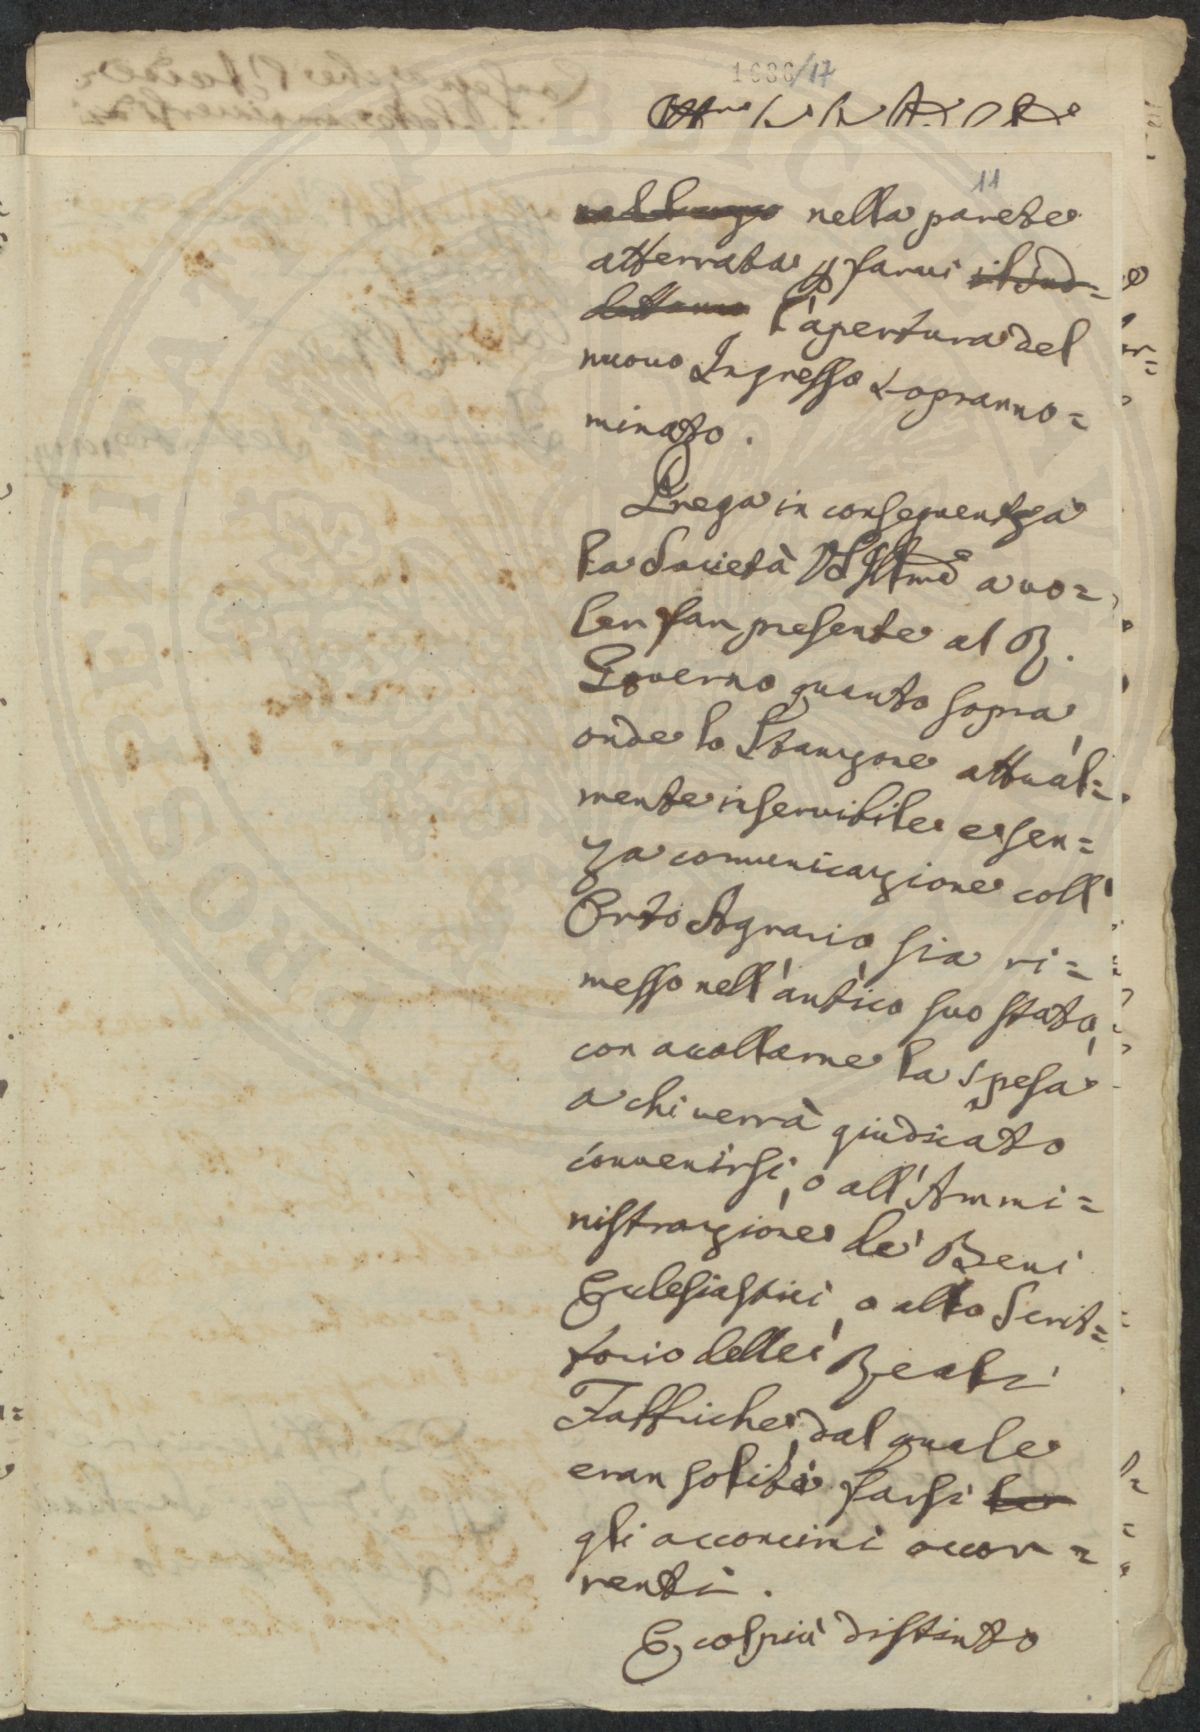 1686/17
11
nella parete
atterrata p farvi il sud=
detto l'apertura del
nuovo Ingresso sopranno=
minato.
Prega in conseguenza
la Società VS Illma a vo=
ler far presente al R.
Governo quanto sopra
onde lo Stanzone attual=
mente inservibile e sen=
za comunicazione coll'
Orto Agrario, sia ri=
messo nell'antico suo stato,
con accollarne la spesa
a chi verrà giudicato
convenirsi, o all'Ammi=
nistrazione de' Beni
Ecclesiastici, o allo Scrit=
torio delle Reali
Fabbriche, dal quale
eran soliti farsi le
gli acconcimi occor=
renti.
E col più distinto
PROSPERITATI PUBLICAE